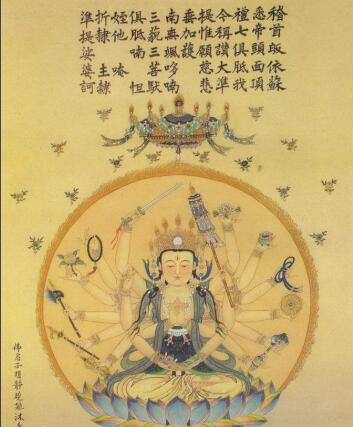 稽首皈依蘇
悉帝頭面頂
禮七俱胝我
今稱讚大準
提惟願慈悲
垂加護
南無颯哆喃
三藐三菩馱
俱胝喃 怛
姪他 唵
折隸 主隸
準提娑婆訶